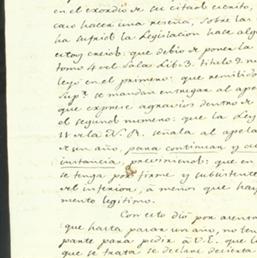 en el exordio de su citado escrito,
caso hacer una reseña, sobre las
ha sufrido la Legislacion hace algu
estoy creido: que debio de poner la
tomo 4 del Sala Lib. 3. titulo 2. no
leyó en el primero: que remitido
Supᵒʳ se mandan entregar al ape
que exprese agravios dentro de
el segundo numero: que la Ley
11 de la N. R. señala al apela
de un año, para continuar y
instancia, precisamente: que en
se tenga por firme y subsistente
del inferior, á menos que hay
mento legitimo.
Con esto dió por
que hasta pasar un año, no ten
parte para pedir á V.E. que la
que se trata se declare desierta